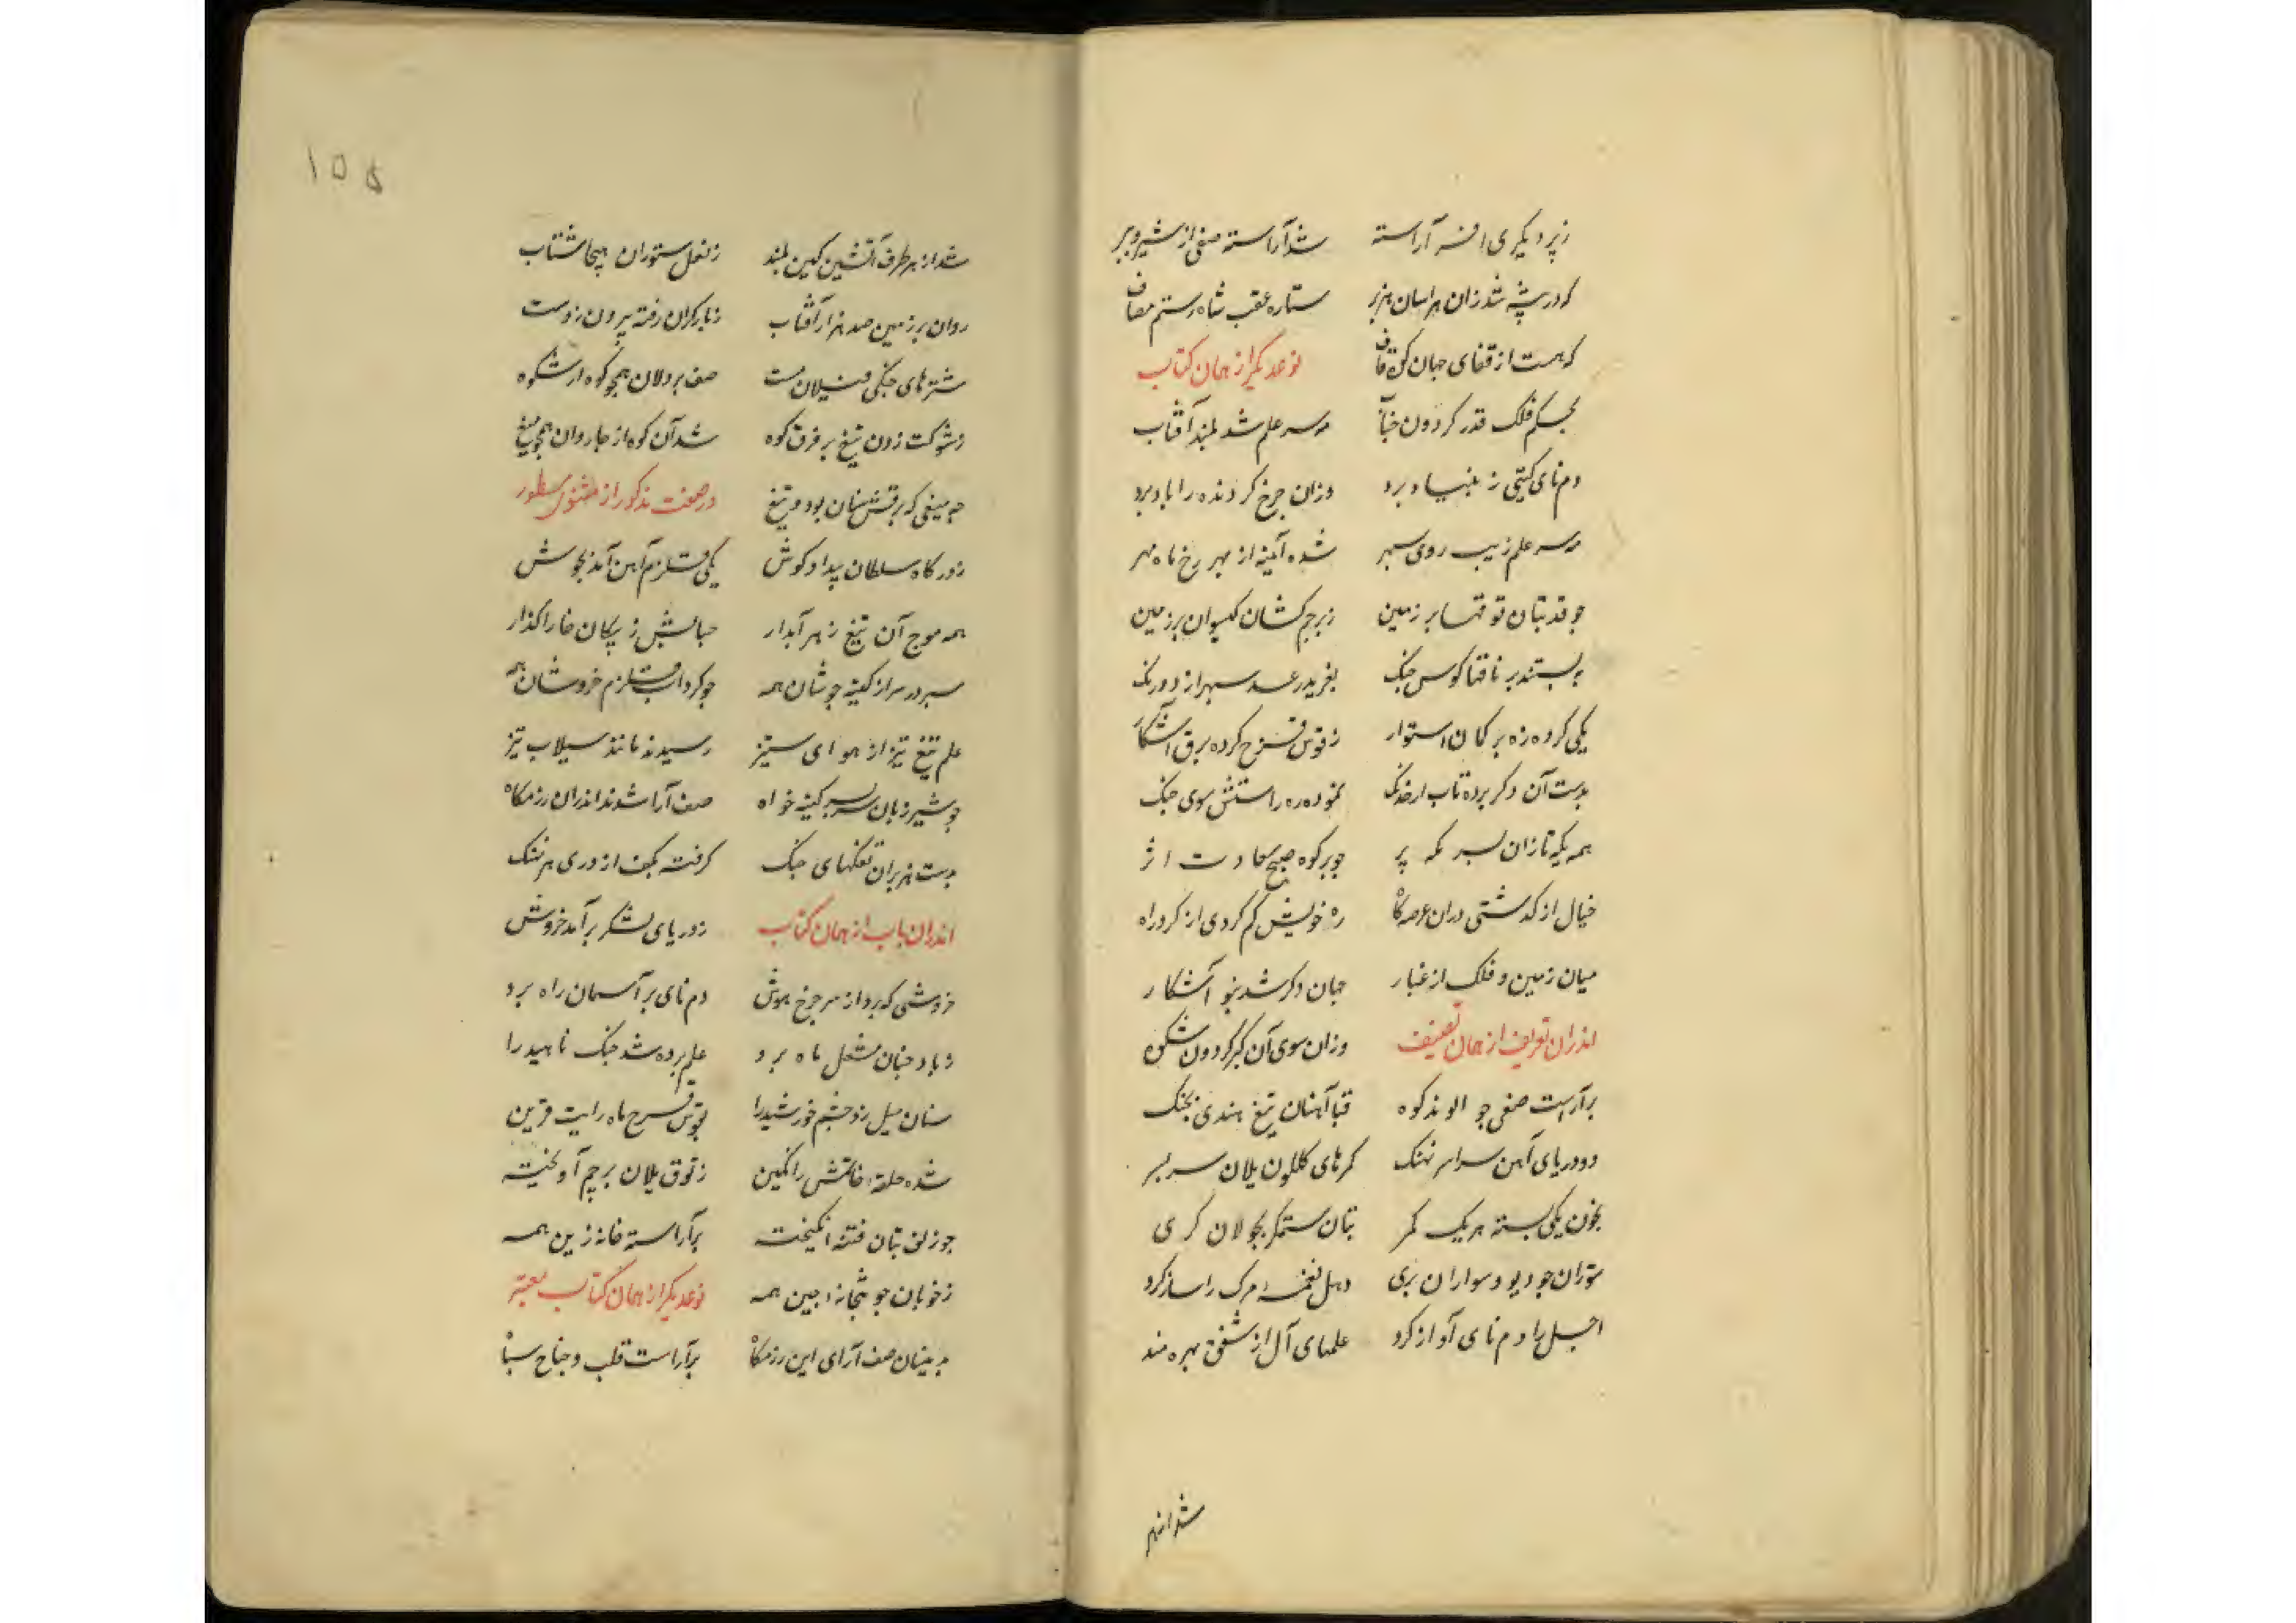 ز پر دیگری افسر آراسته شد آراسته صفی از شیر و ببر
که در بیشه شد زان هراسان هزبر ستاره عقب شاه رستم مصاف
که هست از قفای جهان کوه قاف نوعدیگر از همان کتاب
بحکم فلک قدر گردون جناب سر علم شد بلند آفتاب
دم نای گیتی ز بنیاد برد وزان چرخ گردنده را باد برد
سر علم زیب روی سپهر شده آینه از بهر رخ ماه مهر
جو قد بتان توقها بر زمین ز پرچم کشان گیسوان بر زمین
ببستند بر ناقها کوس جنگ بغرید رعد سپهر از درنگ
یکی کرده زه بر کمان استوار ز قوس قزح کرده برق آشکار
بدست آن دگر برده تاب از خدنگ نموده ره راستش سوی جنگ
همه یکه تازان بسر یکه پر جو بر کوه صبح سعادت اثر
خیال ار گذشتی دران عرصه گاه ره خویش گم کردی از گرد راه
میان زمین و فلک از غبار جهان دگر شد بنو آشکار
اندران تعریف از همان تصنیف وزان سوی آن گبر گردون شکوه
برآراست صفی جو الوند کوه قبا آهنان تیغ هندی بچنگ
دو دریای آهن سراسر نهنگ کمرهای گلگون یلان سر بسر
بخون یکی بسته هر یک کمر بتان ستمگر بجولان گری
ستوران جو دیو و سواران پری دهل نغمهٔ مرگ را ساز کرد
اجل را دم نای آواز کرد علمهای آل از شفق بهره مند
شد از هر
۱۵۵
شد از هر طرف آتشین کین بلند ز نعل ستوران هیجا شتاب
روان بر زمین صد هزار آفتاب ز نابرکران رفته بیرون ز دست
شترهای جنگی و فیلان مست صف پردلان همچو کوه از شکوه
ز شوکت زدن تیغ بر فرق کوه شد آن کوه از جا روان همچو میغ
چه میغی که برقش سنان بود و تیغ در صفت مذکور از مثنوی مسطور
ز درگاه سلطان بیداد کوش یکی قلزم آهن آمد بجوش
همه موج آن تیغ زهر آبدار حبابش ز پیکان خارا گذار
سپر در سر از کینه جوشان همه جو گرداب قلزم خروشان همه
علم تیغ تیز از هوای ستیز رسیدند مانند سیلاب تیز
جو شیر ژیان سر بسر کینه خواه صف آرا شدند اندران رزمگاه
بدست هزبران تفنگهای جنگ گرفته بکف اژدری هر نهنگ
اندران باب از همان کتاب ز دریای لشکر برآمد خروش
خروشی که برد از سر چرخ هوش دم نای بر آسمان راه برد
ز باد چنان مشعل ماه برد علم پرده شد چنگ ناهید را
سنان میل زد چشم خورشید را بقوس قزح ماه رایت قرین
شده حلقه، خاتمش را نگین ز توق یلان پرچم آویخته
جو زلف بتان فتنه انگیخته برآراسته خانه زین همه
ز خوبان جو بتخانه چین همه نوعدیگر از همان کتاب معتبر
بدینسان صف آرای این رزمگاه برآراست قلب و جناح سپاه